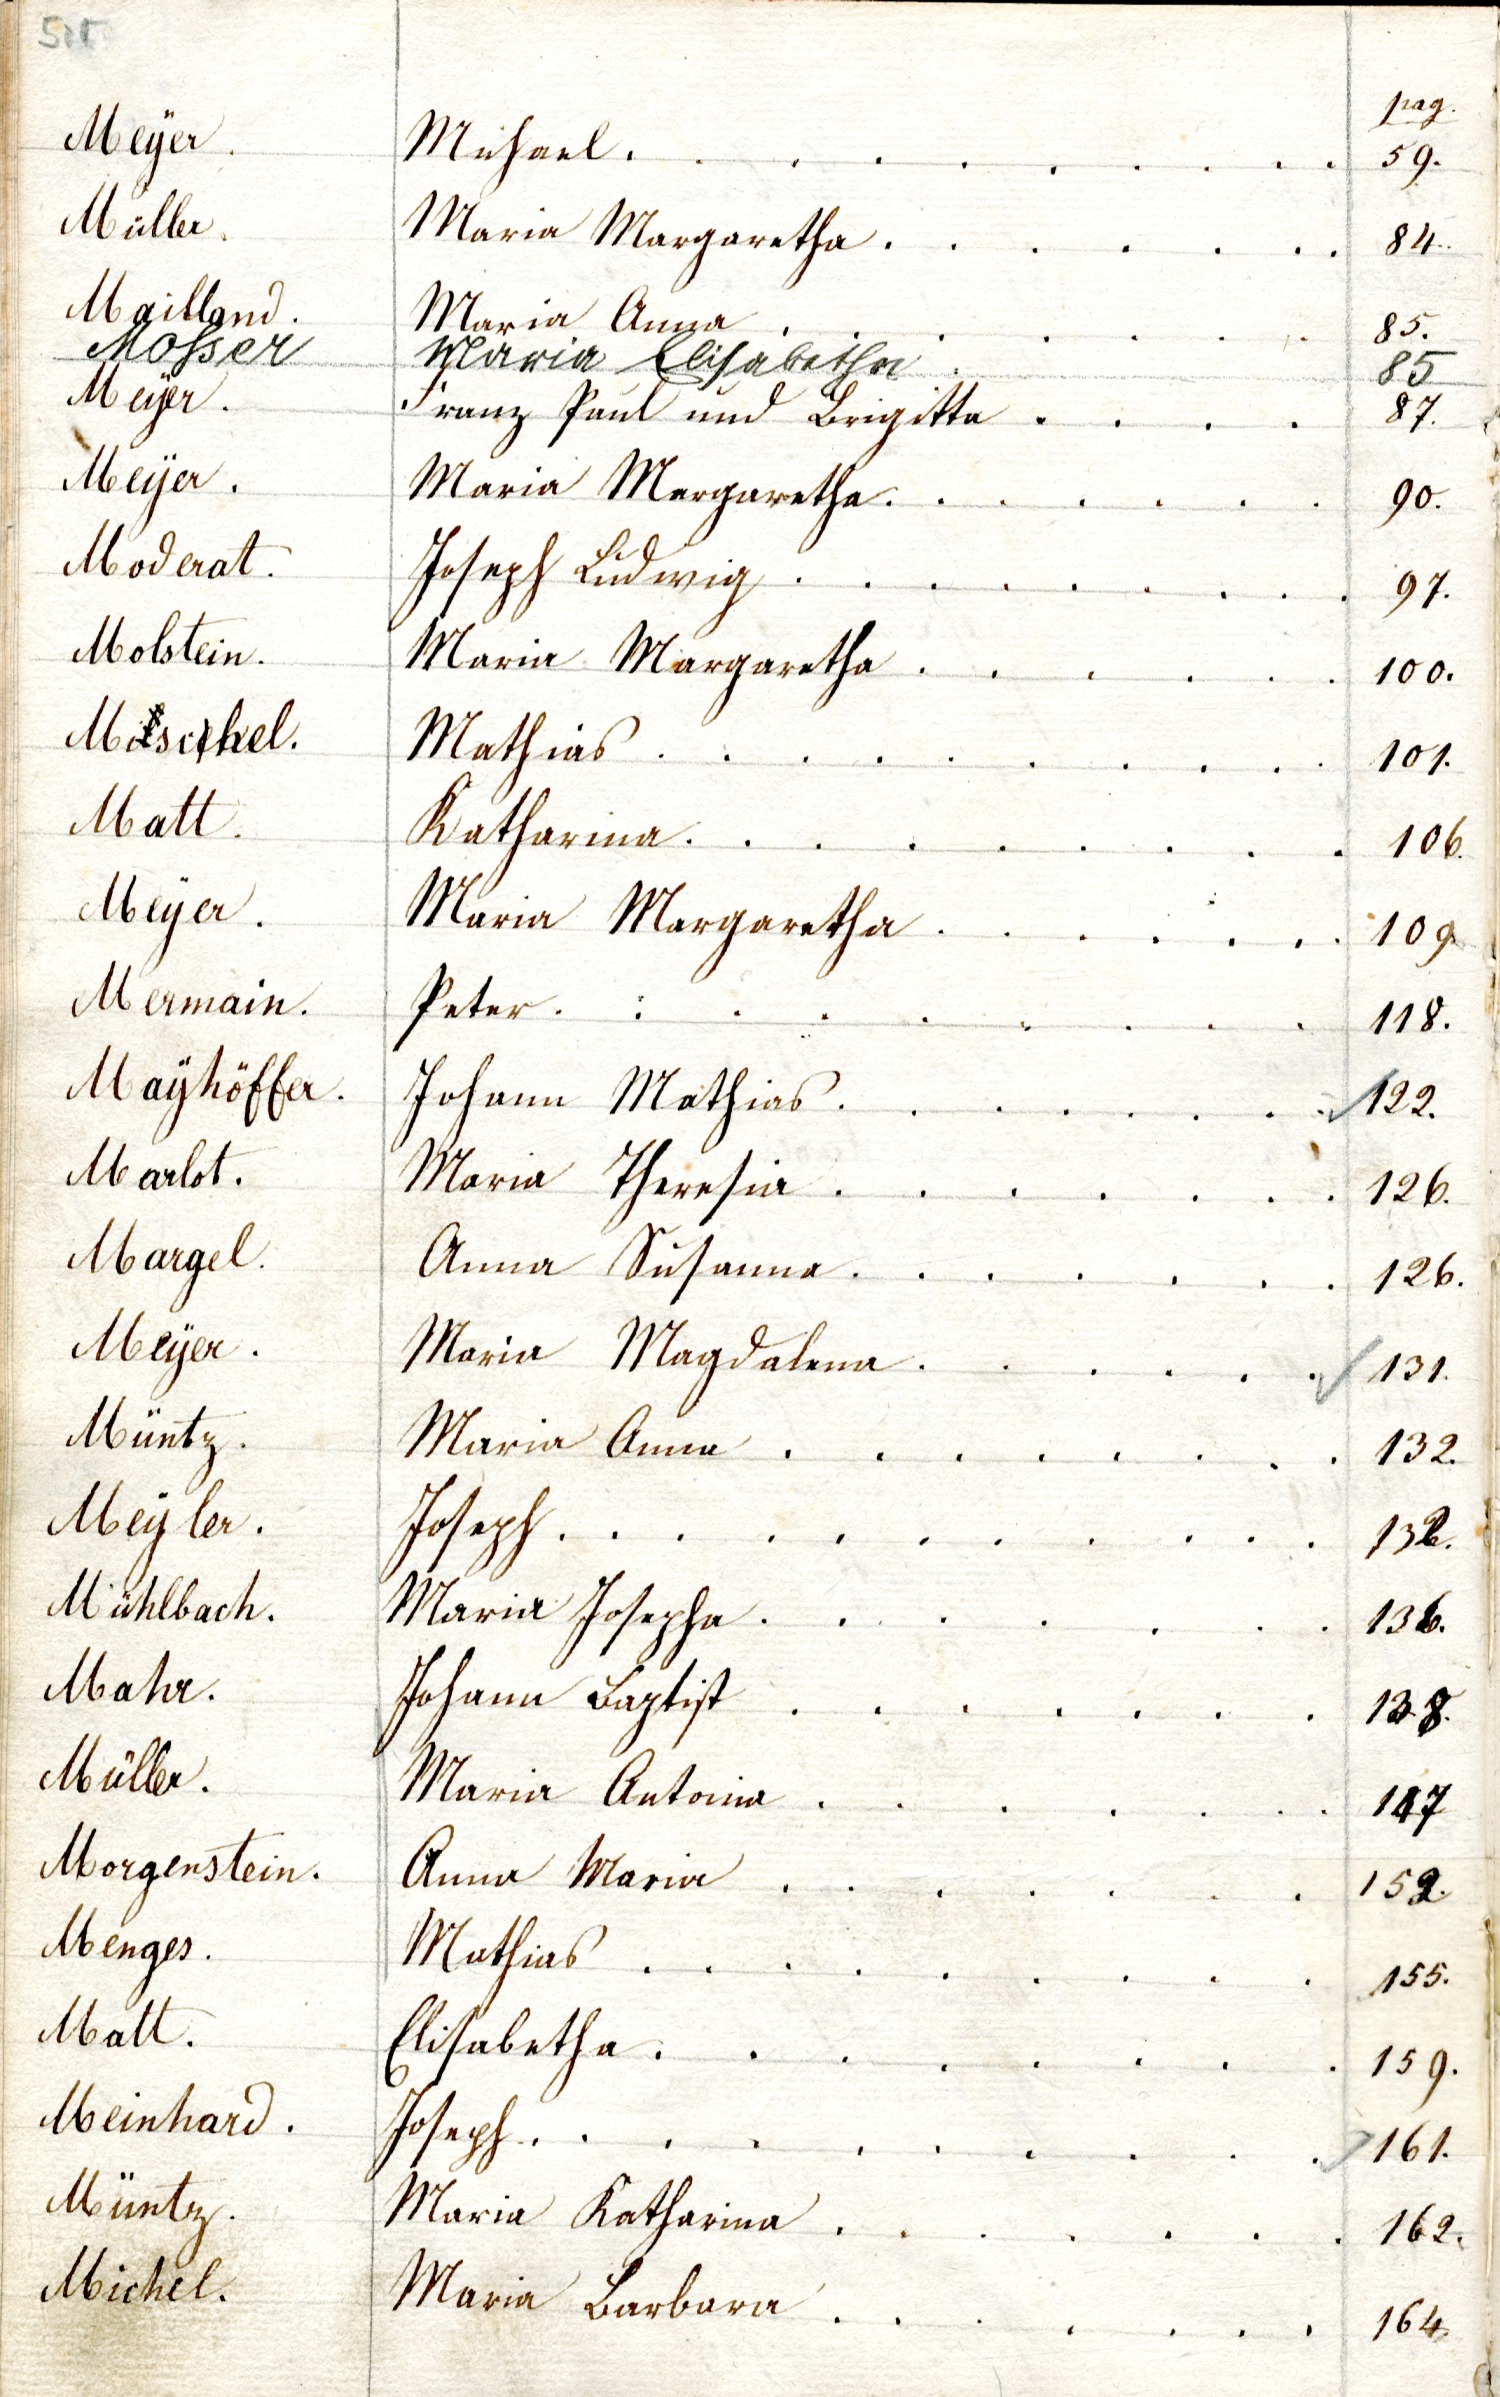 pag.
Meÿer. Michael. 59.
Müller. Maria Margaretha. 84.
Mailland. Maria Anna. 85.
Mosser Maria Elisabetha. 85
Meÿer. Franz Paul und Brigitta. 87.
Meÿer. Maria Margaretha. 90.
Moderat. Joseph Ludwig. 97.
Molstein. Maria Margaretha. 100.
Mathias. 101.
Matt. Katharina. 106.
Meÿer. Maria Margaretha. 109
Mermain. Peter. 118.
Maÿhöffer. Johann Mathias. 122.
Marlot. Maria Theresia. 126.
Margel. Anna Susanna. 126.
Meÿer. Maria Magdalena. 131.
Müntz. Maria Anna. 132.
Meÿler. Joseph. 132.
Mühlbach. Maria Josepha. 136.
Mahr. Johann Baptist. 138.
Müller. Maria Antonia. 147
Morgenstein. Anna Maria. 152.
Menges. Mathias. 155.
Matt. Elisabetha. 159.
Meinhard. Joseph. 161.
Müntz. Maria Katharina. 162.
Michel. Maria Barbara. 164.